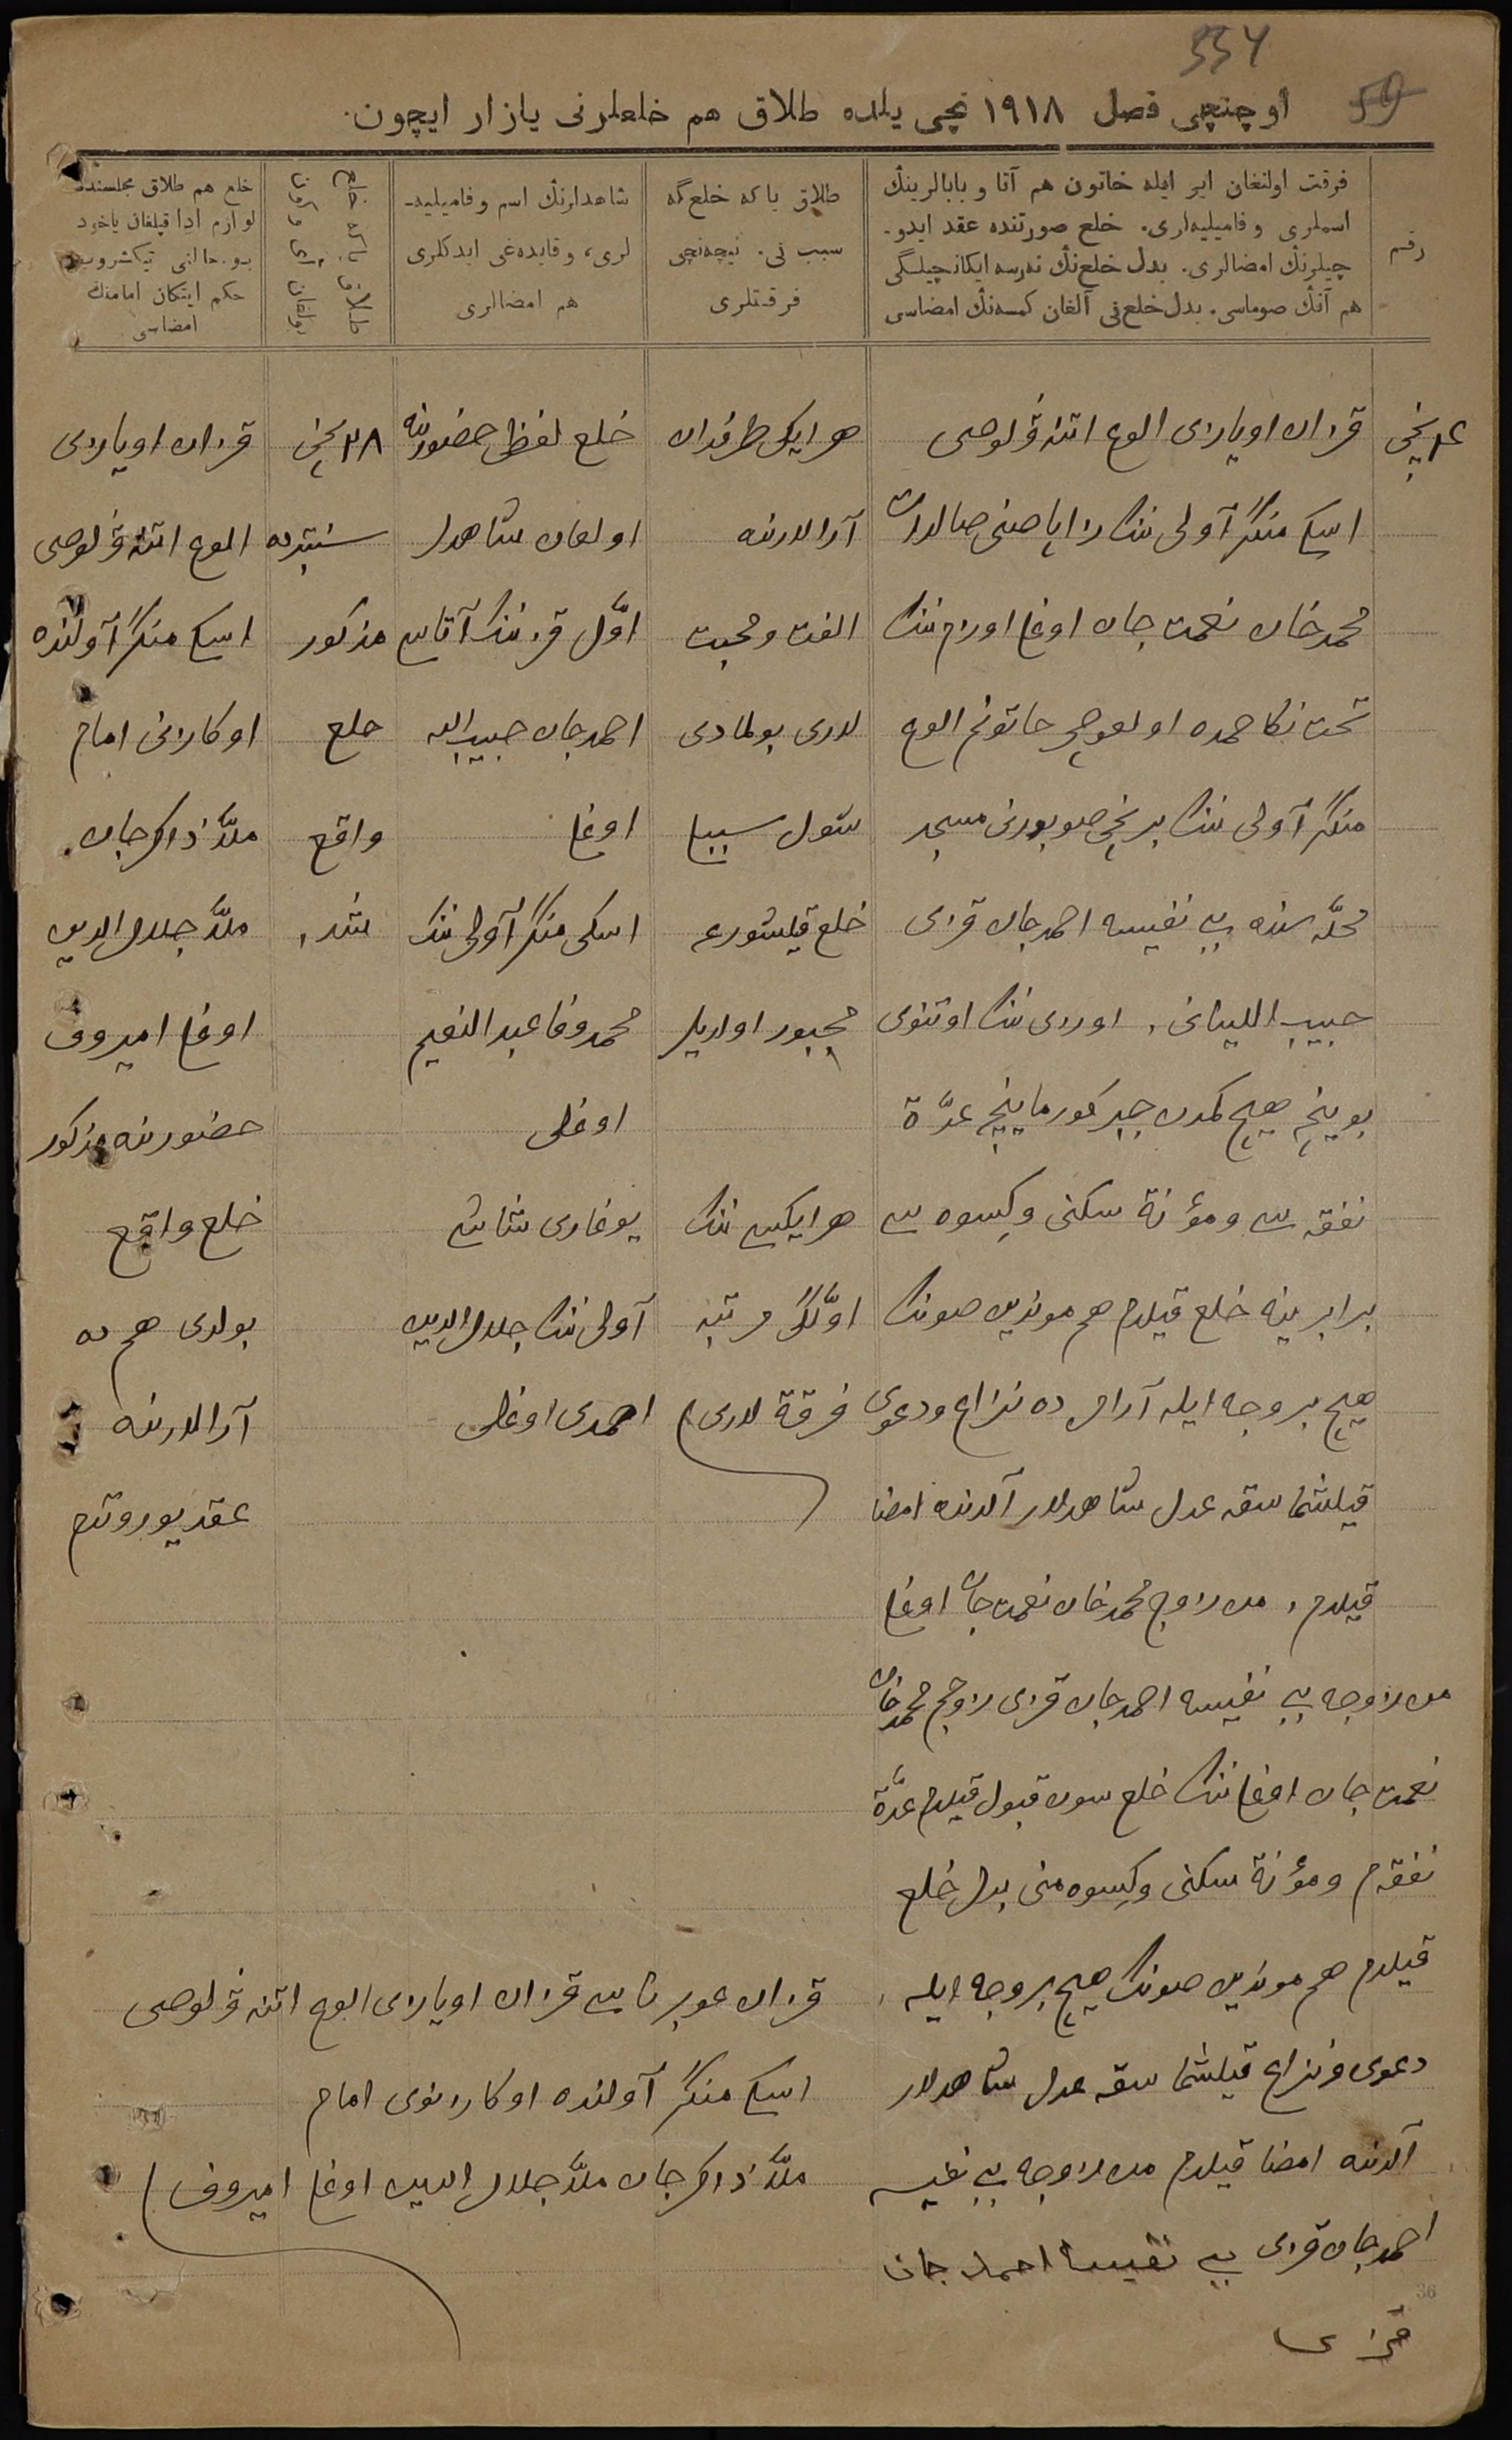 334
59
اوچنچی فصل ١٩١٨ نچی یلده طلاق هم خلعلرنی یازار ایچون.
رقم
فرقت اولنغان ایر ایله خاتون هم آتا و بابالرینڭ
اسملری و فامیلیه‌لری. خلع صورتنده عقد ایدو-
چیلرنڭ امضالری. بدل خلع‌نڭ نه‌رسه ایکانچیلگی
هم آنڭ صوماسی. بدل خلع‌نی آلغان کمسه‌نڭ امضاسی
طلاق یا که خلع گه
سبب نی. نیچه‌نچی
فرقتلری
شاهدلرنڭ اسم و فامیلیه-
لری، و قایده‌غی ایدکلری
هم امضالری
خلع هم طلاق مجلسنده
لوازم ادا قیلغان یاخود
بو حالنی تیکشروب
حکم ایتکان امامنڭ
امضاسی
قزان اویازی الوع اتنه ڤولوصی
اسکی منگر آولی ننڭ
محمدخان نعمت جان اوغلی
تحت نکاحمده اولغوچی خاتونم الوع
منگر آولی ننڭ برنچی صوبورنی مسجد
محلّه سنده بی بی نفیسه احمدجان قزی
هیچ کمدن جبر کورماینچه عدّة
نفقه سی و مؤنة سکنی و کسوه سی
برابرینه خلع قیلدم هم موندین صونڭ
هیچ بر وجه ایله آرامزده نزاع و دعوی
قیلشماسقه عدل شاهدلار آلدنده امضا
قیلدم، من زوج محمدخان نعمت جان اوغلی
من زوجه بی بی نفیسه احمدجان قزی زوجم محمدخان
نعمت جان اوغلی ننڭ خلع سون قبول قیلدم عدّة
نفقه‌م و مؤنة سکنی و کسوه‌منی بدل خلع
قیلدم هم موندین صونڭ هیچ بر وجه ایله
دعوی و نزاع قیلشماسقه عدل شاهدلار
آلدنده امضا قیلدم من زوجه بی بی نفیسه
احمدجان قزی بی بی نفیسه احمد جان
قزی
هر ایکی طرفدان
آرالارنده
الفت و محبت
لاری بولمادی
شول سببلی
خلع قیلشورغه
مجبور اولدیلر
هر ایکیسی ننڭ
اوّلگی مرتبه
فرقة لاری
خلع لفظی حضورنده
اولغان شاهدلر
اوّل قز ننڭ آتاسی
احمدجان حبیب الله
اوغلی
اسکی منگر آولی ننڭ
محمدوفا عبدالنعیم
اوغلی
یوغاری شاشی
آولی ننڭ جلال الدین
احمدی اوغلی
٢٨ نچی
سنتبرده
مذکور
خلع
واقع
شد.
قزان اویازی
الوع اتنه ڤولوصی
اسکی منگر آولنده
اوکازنی امام
ملّا ذاکرجان
ملّا جلال الدین
اوغلی امیروف
حضورنده مذکور
خلع واقع
بولدی هم ده
آرالارنده
عقد یوروتدم
قزان غوبرناسی قزان اویازی الوع اتنه ڤولوصی
اسکی منگر آولنده اوکازنوی امام
ملّا ذاکرجان ملّا جلال الدین اوغلی امیروف
36